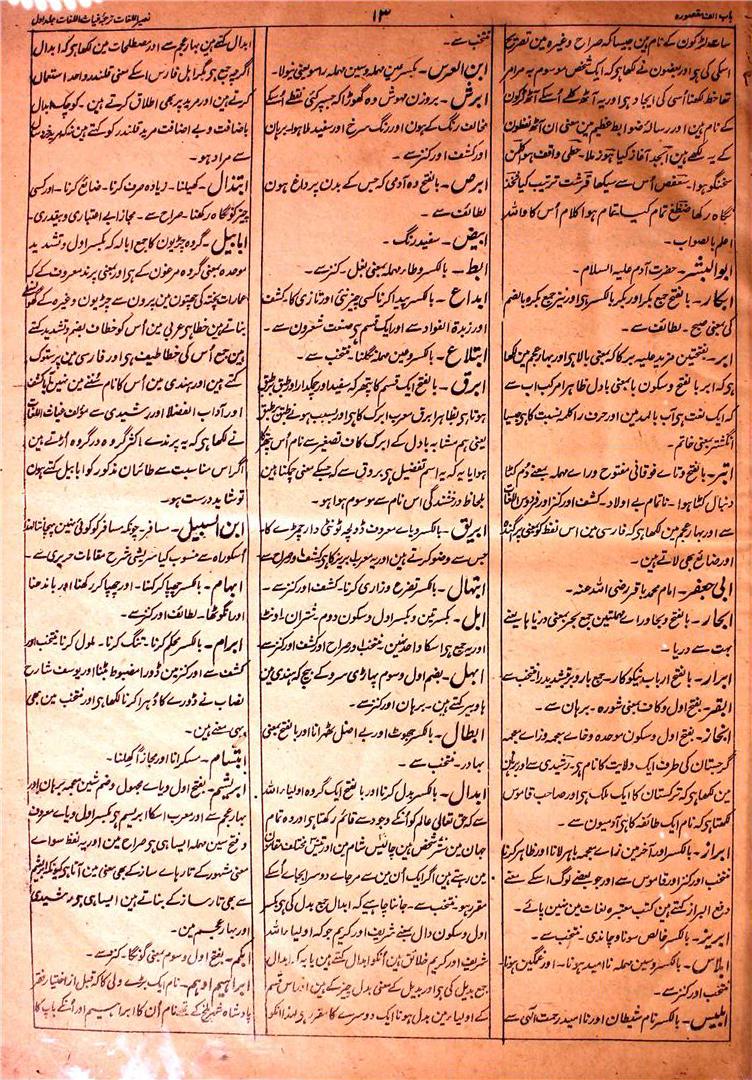 باب الف مقصورہ
۱۳
نصیر اللغات ترجمہ غیاث اللغات جلد اول
سات لڑکون کے نام ہین جیسا کہ صراح وغیرہ مین تصریح
اسکی کی ہی اور بعضون نے لکھا ہو کہ ایک شخص موسوم بہ مرامر
تھا خط لکھنا اُسی کی ایجاد ہی اور یہ آٹھ کلمے اُسکے آٹھ لڑکون
کے نام ہین اور رسالہ ضوابط عظیم مین معنی ان آٹھ لفظون
کے یہ لکھے ہین ابجد آغاز کیا ہوز ملا۔ حطی واقف ہوا کلمن
سخنگو ہوا۔ سعفص اُس سے سیکھا قرشت ترتیب کیا ثخذ
نگاہ رکھا ضظغ تمام کیا۔ تمام ہوا کلام اُس کا واللہ
اعلم بالصواب۔
ابوالبشر۔ حضرت آدم علیہ السلام۔
ابکار۔ بالفتح جمع بکر اور بکر بالکسر ہی اور نیز جمع بکرہ بالضم
کی بمعنی صبح۔ لطائف سے۔
ابر۔ بفتحتین مزید علیہ بر کا کہ بمعنی بالا ہی اور بہار عجم مین لکھا
ہو کہ ابر بالفتح و سکون با بمعنی بادل ظاہرا مرکب اب سے
کہ ایک لغت ہی آب بالمد مین اور حرف را کلمہ نسبت کا ہی جیسا
انگشتر بمعنی خاتم۔
ابتر۔ بالفتح و تاے فوقانی مفتوح و راے مہملہ بمعنے دم کٹا
دنبال کٹا ہوا۔ ناتمام بے اولاد۔ کشف اور کنز اور فردوس اللغات
سے اور بہار عجم مین لکھا کہ فارسی مین اس لفظ کو بمعنی پراگندہ
اور ضائع بھی لاتے ہین۔
ابی جعفر۔ امام محمد باقر رضی اللہ عنہ۔
ابحار۔ بالفتح و بحا و راے مہملتین جمع بحر بمعنی دریا ہا یعنے
بہت سے دریا۔
ابرار۔ بالفتح ارباب نیکو کار۔ جمع بار و بر بتشدید را منتخب سے
ابقر۔ بفتح اول و کاف بمعنی شورہ۔ برہان سے۔
ابخاز۔ بفتح اول و سکون موحدہ و خاے معجمہ و زاے معجمہ
گرجستان کی طرف ایک ولایت کا نام ہی۔ رشیدی سے اور برہان
مین لکھا ہی کہ ترکستان کا ایک ملک ہی اور صاحب قاموس
لکھتا ہی کہ نام ایک طائفہ کا ہی آدمیون سے۔
ابراز۔ بالکسر اور آخر مین زاے معجمہ باہر لانا اور ظاہر کرنا
منتخب اور کنز اور قاموس سے اور جو بعضے لوگ اسکے معنے
دفع البراز کہتے ہین کتب معتبرہ لغات مین نہین پائے۔
ابریز۔ بالکسر خالص سونا و چاندی۔ منتخب سے۔
ابلاس۔ بالکسر و سین مہملہ نا امید ہونا۔ اور غمگین ہونا۔
منتخب اور کنز سے۔
ابلیس۔ بالکسر نام شیطان اور نا امید رحمت الٰہی سے
منتخب سے۔
ابن العرس۔ بکسر عین مہملہ و سین مہملہ راسو یعنی نیولا۔
ابرش۔ بروزن مہوش وہ گھوڑا کہ جسپر کئی نقطے اُسکے
مخالف رنگ کے ہون اور رنگ سرخ اور سفید ملا ہوا۔ برہان
اور کشف اور کنز سے۔
ابرص۔ بالفتح وہ آدمی کہ جس کے بدن پر داغ ہون
لطائف سے۔
ابیض۔ سفید رنگ۔
ابط۔ بالکسر و طاء مہملہ بمعنی بغل۔ کنز سے۔
ابداع۔ بالکسر پیدا کرنا کسی چیز نئی اور تازی کا۔ کشف
اور زبدۃ الفوائد سے اور ایک قسم ہی صنعت شعرون سے۔
ابتلاع۔ بالکسر و عین مہملہ نگلنا۔ منتخب سے۔
ابرق۔ بالفتح ایک قسم کا پتھر کہ سفید اور چمکدار اور طبق بر طبق
ہوتا ہی بظاہر ابرق معرب ابرک کا ہی اور بسبب ہونے طبق بر طبق
یعنی ہم مشابہ بادل کے ابرک کاف تصغیر سے نام اُس پتھر کا
ہوا یا یہ کہ یہ اسم تفضیل ہی بروق سے کہ جسکے معنی چمکنا ہین
بلحاظ درخشندگی اس نام سے موسوم ہوا ہو۔
ابریق۔ بالکسر و یاے معروف ڈولچہ ٹونٹی دار چمڑے کا۔
جس سے وضو کرتے ہین اور یہ معرب آبریز کا ہی کشف و صراح سے
ابتہال۔ بالکسر تضرع و زاری کرنا۔ کشف اور کنز سے۔
ابل۔ بکسرتین و بکسر اول و سکون دوم۔ شتران۔ اونٹ
اور یہ جمع ہی اسکا واحد نہین۔ منتخب و صراح اور کشف اور کنز سے
ابہل۔ بضم اول و سوم پہاڑی سرو کے بیج کہ ہندی مین
ہاوبیر کہتے ہین۔ برہان اور کنز سے۔
ابطال۔ بالکسر جھوٹ اور بے اصل ٹھہرانا اور بالفتح بمعنی
بہادر۔ منتخب سے۔
ابدال۔ بالکسر بدل کرنا اور بالفتح ایک گروہ اولیاء اللہ
سے کہ حق تعالیٰ عالم کو اُنکے وجود سے قائم رکھتا ہی اور وہ تمام
جہان مین ستر شخص ہین چالیس شام مین اور تیس مختلف مقامون
مین رہتے ہین اگر ایک اُن مین سے مر جاے دوسرا بجاے اُسکے
مقرر ہو۔ منتخب سے۔ جاننا چاہیے کہ ابدال جمع بدل کی ہی بکسر
اول و سکون دال بمعنے شریف اور کریم چونکہ اولیاء اللہ
شریف اور کریم خلائق ہین انکو ابدال کہتے ہین یا یہ کہ ابدال
جمع بدیل کی ہی اور بدیل کے معنی بدل چیز کے ہین اور اس قسم
کے اولیاء مین بدل ہونا ایک دوسرے کا مقرر ہی لہذا انکو
ابدال کہتے ہین بہار عجم سے اور مصطلحات مین لکھا ہو کہ ابدال
اگرچہ جمع ہو مگر اہل فارس اسکے معنی قلندر واحد استعمال
کرتے ہین اور مرید پر بھی اطلاق کرتے ہین۔ کوچک ابدال
باضافت و بے اضافت مرید قلندر کو کہتے ہین
سے مراد ہو۔
ابتذال۔ کھیلنا۔ زیادہ صرف کرنا۔ ضائع کرنا۔ اور کسی
چیز کو نگاہ رکھنا۔ صراح سے۔ مجازا بے اعتباری و بیقدری۔
ابابیل۔ گروہ چڑیون کا جمع ابالہ کہ بکسر اول و تشدید
موحدہ بمعنی گروہ مرغون کے ہی اور بمعنی پرند معروف کے کہ
عمارات پختہ کی چھتون مین پرون سے چڑیون وغیرہ کے گھونسلے
بناتے ہین خطا ہی عربی مین اُس کو خطاف بضم و تشدید کہتے
ہین جمع اُس کی خطاطیف ہی اور فارسی مین پرستوک
کہتے ہین اور ہندی مین اُس کا نام سُننے مین نہین آیا کشف
اور آداب الفضلا اور رشیدی سے مؤلف غیاث اللغات
نے لکھا ہی کہ یہ پرندے اکثر گروہ در گروہ اُڑتے ہین
اگر اس مناسبت سے طائران مذکور کو ابابیل کہتے ہون
تو شاید درست ہو۔
ابن السبیل۔ مسافر۔ چونکہ مسافر کو کوئی نہین پہچانتا لہذا
اُسکو راہ سے منسوب کیا۔ شریشی شرح مقامات حریری سے۔
ابہام۔ بالکسر چھپا کر کہنا۔ اور چھپا کر رکھنا اور باندھنا
اور انگوٹھا۔ لطائف اور کنز سے۔
ابرام۔ بالکسر محکم کرنا۔ تنگ کرنا۔ ملول کرنا۔ منتخب اور
کشف سے اور کنز مین ڈورا مضبوط بٹنا اور یوسف شارح
نصاب نے ڈورے کا دُہرا کرنا لکھا ہی اور منتخب مین بھی
یہی معنے ہین۔
ابتسام۔ مسکرانا اور مجازاً کھلنا۔
ابریشم۔ بفتح اول و یاے مجہول و ضم شین معجمہ برہان اور
بہار عجم سے اور معرب اسکا ابریسم ہو بکسر اول و یاے معروف
و فتح سین مہملہ ایسا ہی ہو صراح مین اور یہ لفظ سواے
معنی مشہور کے تارہاے ساز کے بھی معنی مین آتا ہی کیونکہ ابریشم
سے بھی تار ساز کے بناتے ہین ایسا ہی ہو رشیدی
اور بہار عجم مین۔
ابکم۔ بفتح اول و سوم بمعنی گونگا۔ کنز سے۔
ابراہیم ادہم۔ نام ایک بڑے ولی کا کہ قبل از اختیار فقر
پادشاہ شہر بلخ کے تھے نام اُن کا ابراہیم اور اُنکے باپ کا